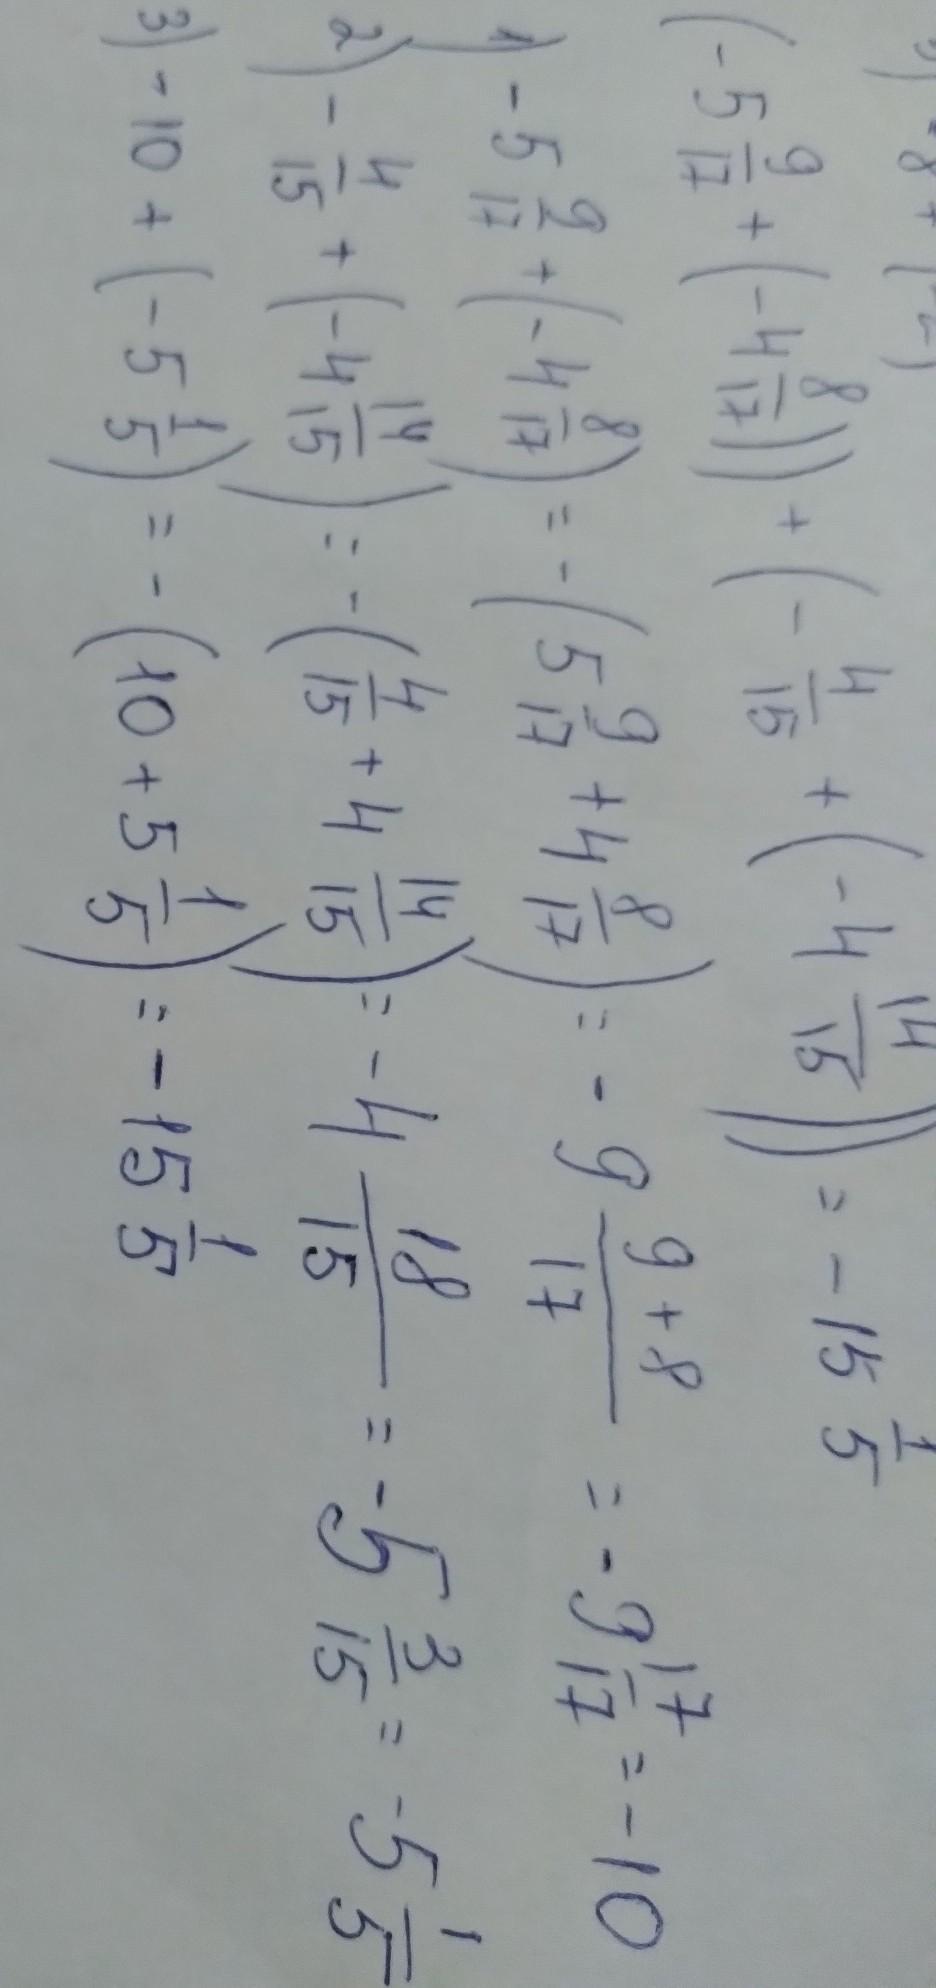 (-5 9/17 + (-4 8/17)) + (- 4/15 + (-4 14/15)) = -15 1/5
1) -5 9/17 + (-4 8/17) = -(5 9/17 + 4 8/17) = -9 (9+8)/17 = -9 17/17 = -10
2) - 4/15 + (-4 14/15) = -(4/15 + 4 14/15) = -4 18/15 = -5 3/15 = -5 1/5
3) -10 + (-5 1/5) = -(10 + 5 1/5) = -15 1/5